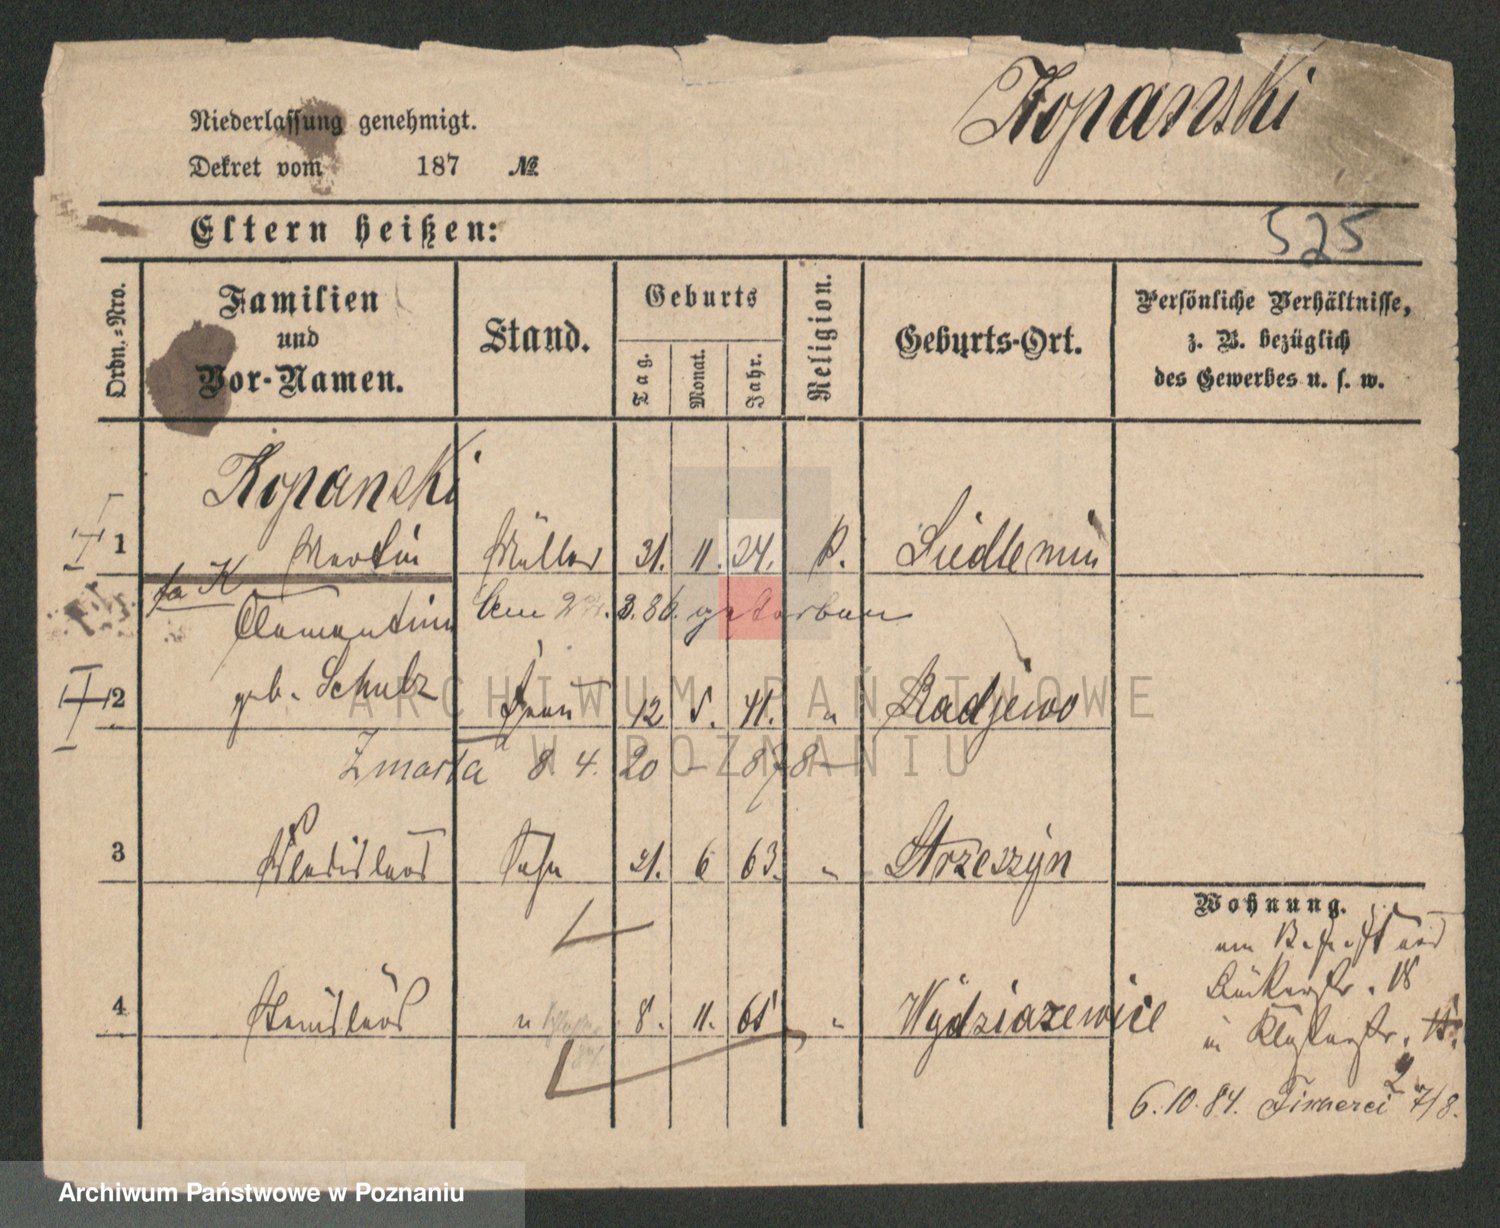 Kopanski
Niederlassung genehmigt.
Dekret vom 187 №
Eltern heißen:
525
Ordn.-Nro.
Familien und Vor-Namen.
Stand.
Geburts
Tag.
Monat.
Jahr.
Religion.
Geburts-Ort.
Persönliche Verhältnisse,
z. B. bezüglich
des Gewerbes u. s. w.
Kopanski
I 1 Martin Müller 31. 11. 24. k. Siedlemin
Am 3. 86. gestorben
Clementine
II 2 geb. Schulz Frau 12 5. 41. " Radjewo
Zmarła 8 4. 20 - 878
3 Wladislaus Sohn 21. 6 63. " Strzeszyn
4 Stanislaus " 8. 11. 65 " Wydziazewice
Wohnung.
Bäckerstr. 18
in Klosterstr.
2
6.10.84. 7/8.
ARCHIWUM PAŃSTWOWE
W POZNANIU
Archiwum Państwowe w Poznaniu